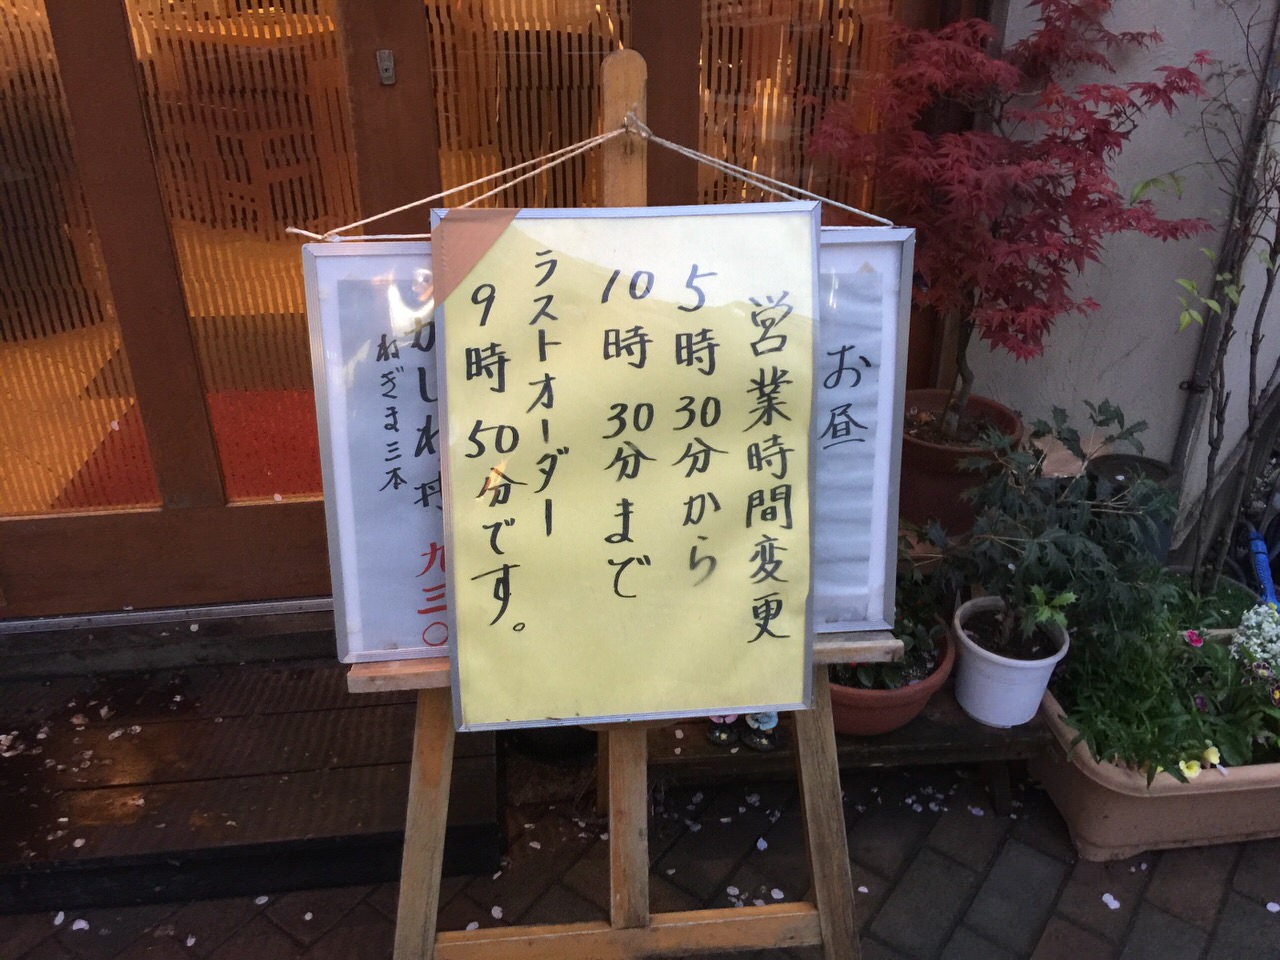 営業時間変更
5時30分から
10時30分まで
ラストオーダー
9時50分です。
お昼
かしわ丼 九三〇
ねぎま三本